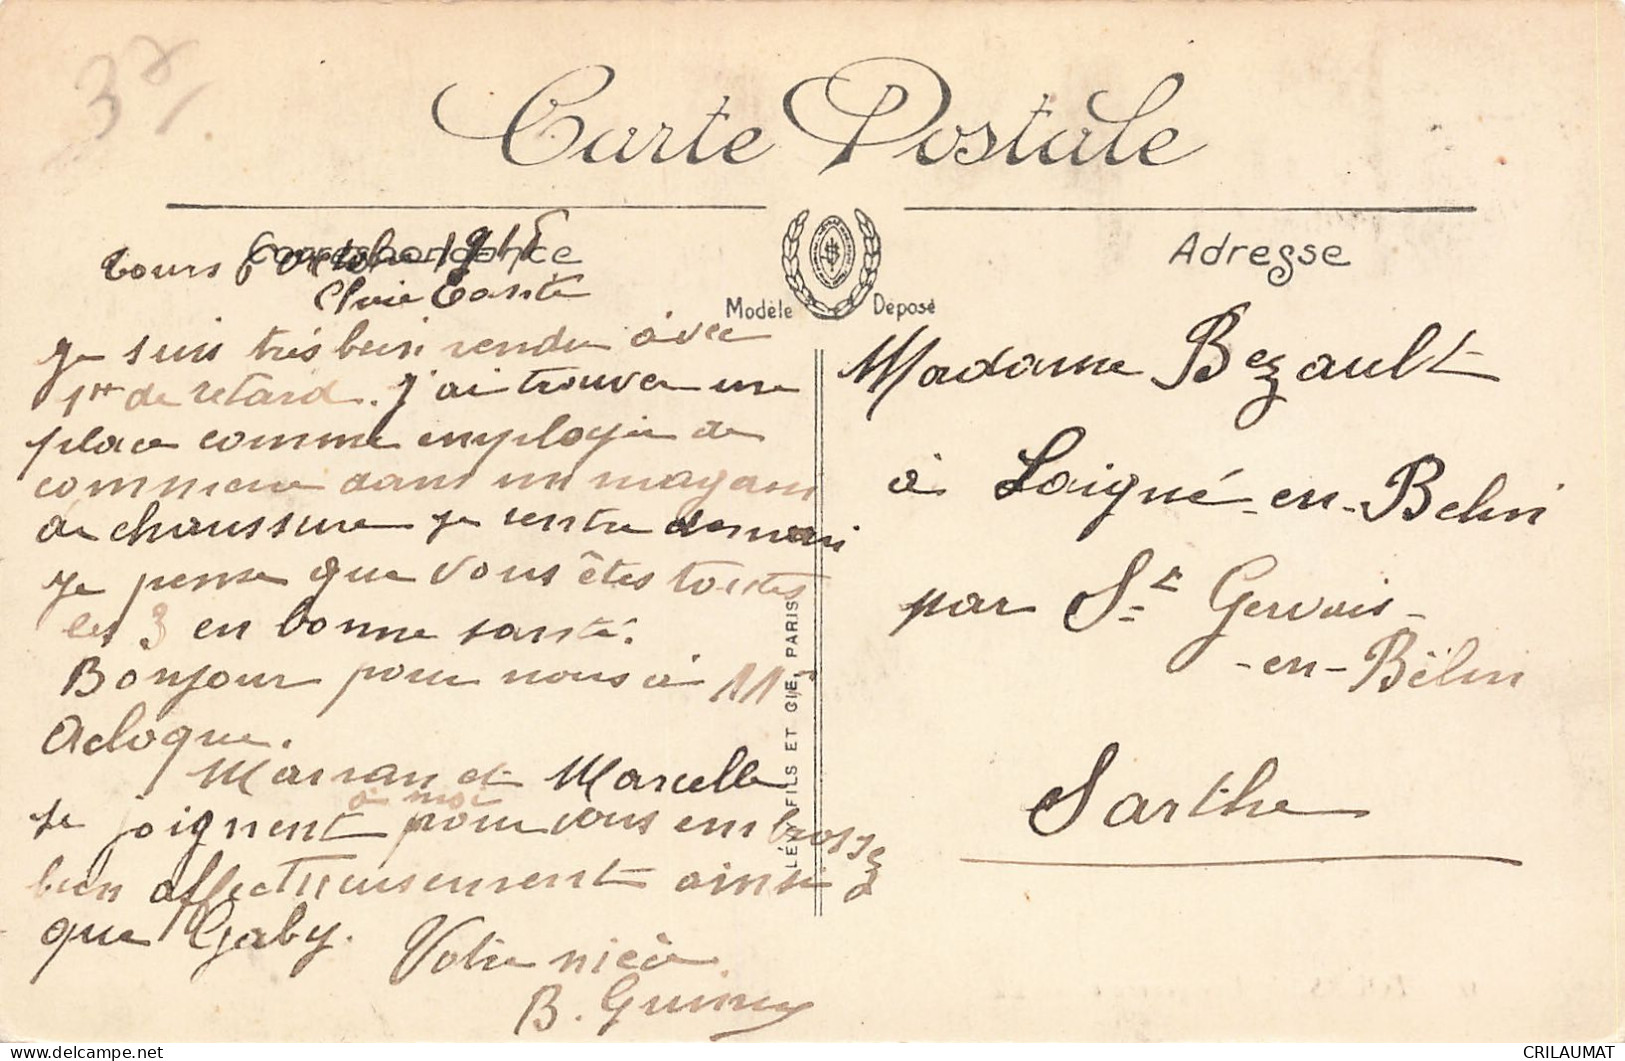 37
Carte Postale
Correspondance
Adresse
Modèle Déposé
Tours 6 octobre 191
Chère Tante
Je suis très bien rendu avec
1 H de retard. J'ai trouver une
place comme employée de
commerce dans un magasin
de chaussure je rentre demain
Je pense que vous êtes toutes
les 3 en bonne santé.
Bonjour pour nous à Mr
Acloque.
Maman et Marcelle
se joignent à moi pour vous embrassez
bien affectueusement ainsi
que Gaby. Votre nièce
B.
LÉVY FILS ET CIE, PARIS
Madame Bezault
à Laigné-en-Belin
par St Gervais-
-en-Bélin
Sarthe
CRILAUMAT